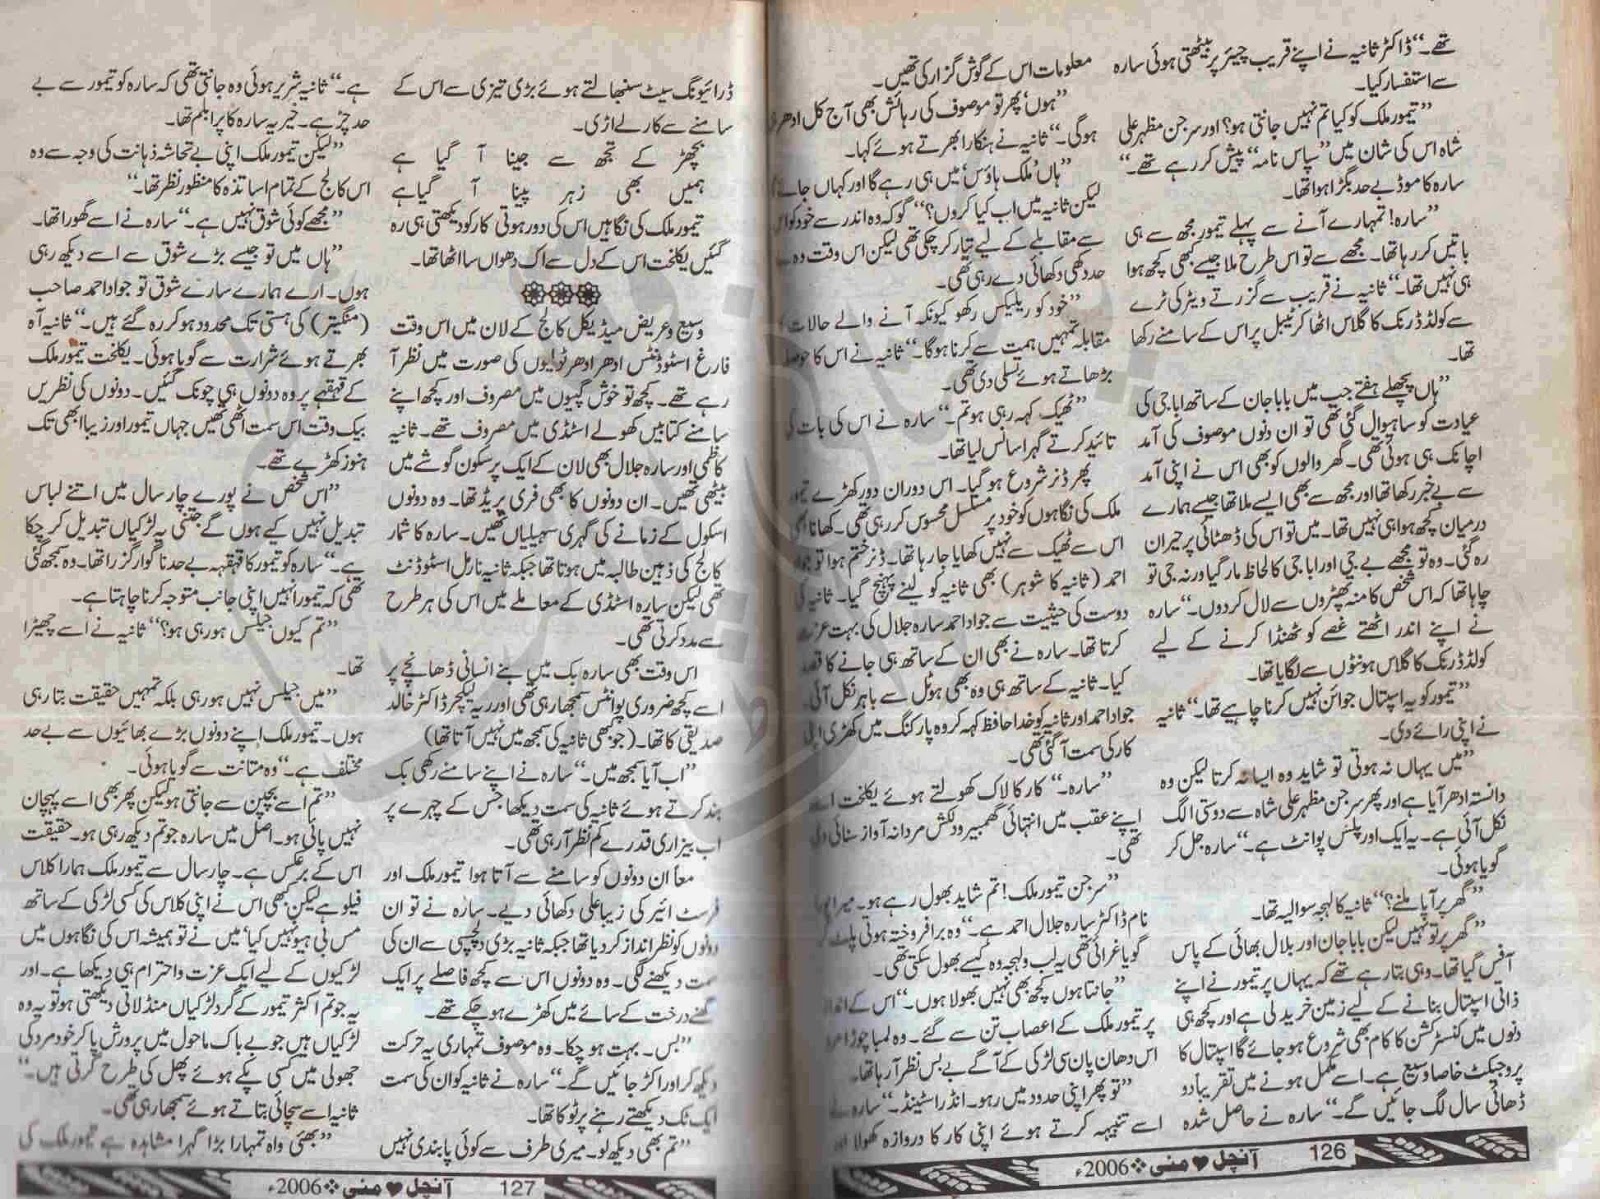 تھے۔“ ڈاکٹر ثانیہ نے اپنے قریب چیئر پر بیٹھتی ہوئی سارہ
سے استفسار کیا۔
”تیمور ملک کو کیا تم نہیں جانتی ہو؟ اور سرجن مظہر علی
شاہ اس کی شان میں ”سپاس نامہ“ پیش کر رہے تھے۔“
سارہ کا موڈ بے حد بگڑا ہوا تھا۔
”سارہ! تمہارے آنے سے پہلے تیمور مجھ سے ہی
باتیں کر رہا تھا۔ مجھ سے تو اس طرح ملا جیسے کبھی کچھ ہوا
ہی نہیں تھا۔“ ثانیہ نے قریب سے گزرتے ویٹر کی ٹرے
سے کولڈ ڈرنک کا گلاس اٹھا کر ٹیبل پر اس کے سامنے رکھا
تھا۔
”ہاں پچھلے ہفتے جب میں بابا جان کے ساتھ ابا جی کی
عیادت کو ساہیوال گئی تھی تو ان دنوں موصوف کی آمد
اچانک ہی ہوئی تھی۔ گھر والوں کو بھی اس نے اپنی آمد
سے بے خبر رکھا تھا اور مجھ سے بھی ایسے ملا تھا جیسے ہمارے
درمیان کچھ ہوا ہی نہیں تھا۔ میں تو اس کی ڈھٹائی پر حیران
رہ گئی۔ وہ تو مجھے بے جی اور ابا جی کا لحاظ مار گیا ورنہ جی تو
چاہا تھا کہ اس شخص کا منہ تھپڑوں سے لال کر دوں۔“ سارہ
نے اپنے اندر اٹھتے غصے کو ٹھنڈا کرنے کے لیے
کولڈ ڈرنک کا گلاس ہونٹوں سے لگایا تھا۔
”تیمور کو یہ اسپتال جوائن نہیں کرنا چاہیے تھا۔“ ثانیہ
نے اپنی رائے دی۔
”میں یہاں نہ ہوتی تو شاید وہ ایسا نہ کرتا لیکن وہ
دانستہ ادھر آیا ہے اور پھر سرجن مظہر علی شاہ سے دوستی الگ
نکل آئی ہے۔ یہ ایک اور پلس پوائنٹ ہے۔“ سارہ جل کر
گویا ہوئی۔
”گھر پر آیا ملنے؟“ ثانیہ کا لہجہ سوالیہ تھا۔
”گھر پر تو نہیں لیکن بابا جان اور بلال بھائی کے پاس
آفس گیا تھا۔ وہی بتا رہے تھے کہ یہاں پر تیمور نے اپنے
ذاتی اسپتال بنانے کے لیے زمین خرید لی ہے اور کچھ ہی
دنوں میں کنسٹرکشن کا کام بھی شروع ہو جائے گا اسپتال کا
پروجیکٹ خاصا وسیع ہے۔ اسے مکمل ہونے میں تقریباً دو
ڈھائی سال لگ جائیں گے۔“ سارہ نے حاصل شدہ
معلومات اس کے گوش گزار کی تھیں۔
”ہوں‘ پھر تو موصوف کی رہائش بھی آج کل ادھر
ہوگی۔“ ثانیہ نے ہنکارا بھرتے ہوئے کہا۔
”ہاں ’ملک ہاؤس‘ میں ہی رہے گا اور کہاں جائے
لیکن ثانیہ میں اب کیا کروں؟“ گو کہ وہ اندر سے خود کو
سے مقابلے کے لیے تیار کر چکی تھی لیکن اس وقت وہ بے
حد دکھی دکھائی دے رہی تھی۔
”خود کو ریلیکس رکھو کیونکہ آنے والے حالات
مقابلہ تمہیں ہمت سے کرنا ہوگا۔“ ثانیہ نے اس کا
بڑھاتے ہوئے تسلی دی تھی۔
”ٹھیک کہہ رہی ہو تم۔“ سارہ نے اس کی بات کی
تائید کرتے گہرا سانس لیا تھا۔
پھر ڈنر شروع ہو گیا۔ اس دوران دور کھڑے
ملک کی نگاہوں کو خود پر مسلسل محسوس کر رہی تھی۔ کھانا
اس سے ٹھیک سے نہیں کھایا جا رہا تھا۔ ڈنر ختم ہوا تو
احمد (ثانیہ کا شوہر) بھی ثانیہ کو لینے پہنچ گیا۔ ثانیہ کی
دوست کی حیثیت سے جواد احمد سارہ جلال کی بہت
کرتا تھا۔ سارہ نے بھی ان کے ساتھ ہی جانے کا
کیا۔ ثانیہ کے ساتھ ہی وہ بھی ہوٹل سے باہر نکل آئی
جواد احمد اور ثانیہ کو خدا حافظ کہہ کر وہ پارکنگ میں کھڑی اپنی
کار کی سمت آگئی تھی۔
”سارہ۔“ کار کا لاک کھولتے ہوئے یکلخت
اپنے عقب میں انتہائی گھمبیر و دلکش مردانہ آواز سنائی دی
تھی۔
”سرجن تیمور ملک! تم شاید بھول رہے ہو۔ میرا
نام ڈاکٹر سارہ جلال احمد ہے۔“ وہ برافروختہ ہوتی پلٹ
گویا غرائی تھی یہ لب و لہجہ وہ کیسے بھول سکتی تھی۔
”جانتا ہوں کچھ بھی نہیں بھولا ہوں۔“ اس کے
پر تیمور ملک کے اعصاب تن سے گئے۔ وہ لمبا چوڑا
اس دھان پان سی لڑکی کے آگے بے بس نظر آ رہا تھا۔
”تو پھر اپنی حدود میں رہو۔ انڈر اسٹینڈ۔“ سارہ نے
اسے تنبیہہ کرتے ہوئے اپنی کار کا دروازہ کھولا اور
آنچل ♥ مئی ❖ 2006ء 126
ڈرائیونگ سیٹ سنبھالتے ہوئے بڑی تیزی سے اس کے
سامنے سے کار لے اڑی۔
بچھڑ کے تجھ سے جینا آ گیا ہے
ہمیں بھی زہر پینا آ گیا ہے
تیمور ملک کی نگاہیں اس کی دور ہوتی کار کو دیکھتی ہی رہ
گئیں یکلخت اس کے دل سے اک دھواں سا اٹھا تھا۔
وسیع و عریض میڈیکل کالج کے لان میں اس وقت
فارغ اسٹوڈنٹس ادھر ادھر ٹولیوں کی صورت میں نظر آ
رہے تھے۔ کچھ تو خوش گپیوں میں مصروف اور کچھ اپنے
سامنے کتابیں کھولے اسٹڈی میں مصروف تھے۔ ثانیہ
کاظمی اور سارہ جلال بھی لان کے ایک پرسکون گوشے میں
بیٹھی تھیں۔ ان دونوں کا بھی فری پریڈ تھا۔ وہ دونوں
اسکول کے زمانے کی گہری سہیلیاں تھیں۔ سارہ کا شمار
کالج کی ذہین طالبہ میں ہوتا تھا جبکہ ثانیہ نارمل اسٹوڈنٹ
تھی لیکن سارہ اسٹڈی کے معاملے میں اس کی ہر طرح
سے مدد کرتی تھی۔
اس وقت بھی سارہ بک میں بنے انسانی ڈھانچے پر
اسے کچھ ضروری پوائنٹس سمجھا رہی تھی اور یہ لیکچر ڈاکٹر خالد
صدیقی کا تھا۔ (جو کبھی ثانیہ کی سمجھ میں نہیں آتا تھا)
”اب آیا سمجھ میں۔“ سارہ نے اپنے سامنے رکھی بک
بند کرتے ہوئے ثانیہ کی سمت دیکھا جس کے چہرے پر
اب بیزاری قدرے کم نظر آ رہی تھی۔
معاً ان دونوں کو سامنے سے آتا ہوا تیمور ملک اور
فرسٹ ائیر کی زیبا علی دکھائی دیے۔ سارہ نے تو ان
دونوں کو نظر انداز کر دیا تھا جبکہ ثانیہ بڑی دلچسپی سے ان کی
سمت دیکھنے لگی۔ وہ دونوں اس سے کچھ فاصلے پر ایک
گھنے درخت کے سائے میں کھڑے ہو چکے تھے۔
”بس۔ بہت ہو چکا۔ وہ موصوف تمہاری یہ حرکت
دیکھ کر اور اکڑ جائیں گے۔“ سارہ نے ثانیہ کو ان کی سمت
ایک ٹک دیکھتے رہنے پر ٹوکا تھا۔
”تم بھی دیکھ لو۔ میری طرف سے کوئی پابندی نہیں
ہے۔“ ثانیہ شریر ہوئی وہ جانتی تھی کہ سارہ کو تیمور سے بے
حد چڑ ہے۔ خیر یہ سارہ کا پرابلم تھا۔
”لیکن تیمور ملک اپنی بے تحاشہ ذہانت کی وجہ سے وہ
اس کالج کے تمام اساتذہ کا منظور نظر تھا۔“
”مجھے کوئی شوق نہیں ہے۔“ سارہ نے اسے گھورا تھا۔
”ہاں میں تو جیسے بڑے شوق سے اسے دیکھ رہی
ہوں۔ ارے ہمارے سارے شوق تو جواد احمد صاحب
(منگیتر) کی ہستی تک محدود ہو کر رہ گئے ہیں۔“ ثانیہ آہ
بھرتے ہوئے شرارت سے گویا ہوئی۔ یکلخت تیمور ملک
کے قہقہے پر وہ دونوں ہی چونک گئیں۔ دونوں کی نظریں
بیک وقت اس سمت اٹھی تھیں جہاں تیمور اور زیبا ابھی تک
ہنوز کھڑے تھے۔
”اس شخص نے پورے چار سال میں اتنے لباس
تبدیل نہیں کیے ہوں گے جتنی یہ لڑکیاں تبدیل کر چکا
ہے۔“ سارہ کو تیمور کا قہقہہ بے حد ناگوار گزرا تھا۔ وہ سمجھ گئی
تھی کہ تیمور انہیں اپنی جانب متوجہ کرنا چاہتا ہے۔
”تم کیوں جیلس ہو رہی ہو؟“ ثانیہ نے اسے چھیڑا
تھا۔
”میں جیلس نہیں ہو رہی بلکہ تمہیں حقیقت بتا رہی
ہوں۔ تیمور ملک اپنے دونوں بڑے بھائیوں سے بے حد
مختلف ہے۔“ وہ متانت سے گویا ہوئی۔
”تم اسے بچپن سے جانتی ہو لیکن پھر بھی اسے پہچان
نہیں پائی ہو۔ اصل میں سارہ جو تم دیکھ رہی ہو۔ حقیقت
اس کے برعکس ہے۔ چار سال سے تیمور ملک ہمارا کلاس
فیلو ہے لیکن کبھی اس نے اپنی کلاس کی کسی لڑکی کے ساتھ
مس بی ہیو نہیں کیا‘ میں نے تو ہمیشہ اس کی نگاہوں میں
لڑکیوں کے لیے ایک عزت و احترام ہی دیکھا ہے۔ اور
یہ جو تم اکثر تیمور کے گرد لڑکیاں منڈلاتی دیکھتی ہو تو یہ وہ
لڑکیاں ہیں جو بے باک ماحول میں پرورش پا کر خود مرد کی
جھولی میں کسی پکے ہوئے پھل کی طرح گرتی ہیں۔“
ثانیہ اسے سچائی بتاتے ہوئے سمجھا رہی تھی۔
”بھئی واہ تمہارا بڑا گہرا مشاہدہ ہے تیمور ملک کی
آنچل ♥ مئی ❖ 2006ء 127